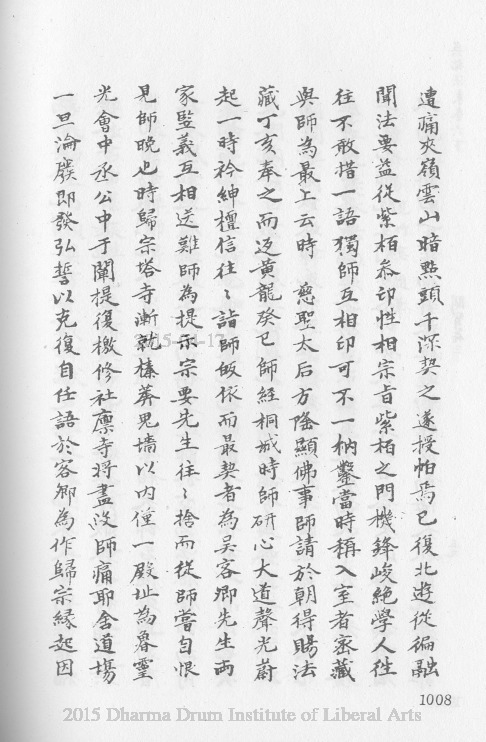 遭痛夾嶺雲山暗點頭千深契之遂授帕焉已復北遊從徧融
聞法要益從紫栢叅印性相宗旨紫栢之門機鋒峻絕學人徃
往不敢措一語獨師互相印可不一枘鑿當時稱入室者密藏
與師為最上云時 慈聖太后方隆顯佛事師請於朝得賜法
藏丁亥奉之而返黃龍癸巳師經桐城時師研心大道聲光蔚
起一時衿紳檀信往〻詣師皈依而最契者為吳客卿先生兩
家監義互相送難師為提示宗要先生往〻捨而從師嘗自恨
見師晚也時歸宗塔寺漸就榛莽鬼墻以內僅一殿址為魯靈
光會中丞公中于闡提復檄修社廩寺將盡沒師痛耶舍道場
一旦淪廢即發弘誓以克復自任語於客卿為作歸宗緣起因
1008
2015 Dharma Drum Institute of Liberal Arts